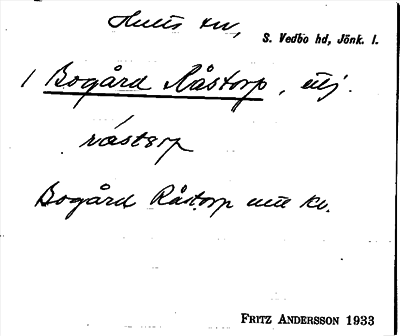 Hults sn,
S. Vedbo hd, Jönk. l.
1 Bogård Råstorp, utj.
råstorp
Bogård Råstorp utj kv.
FRITZ ANDERSSON 1933